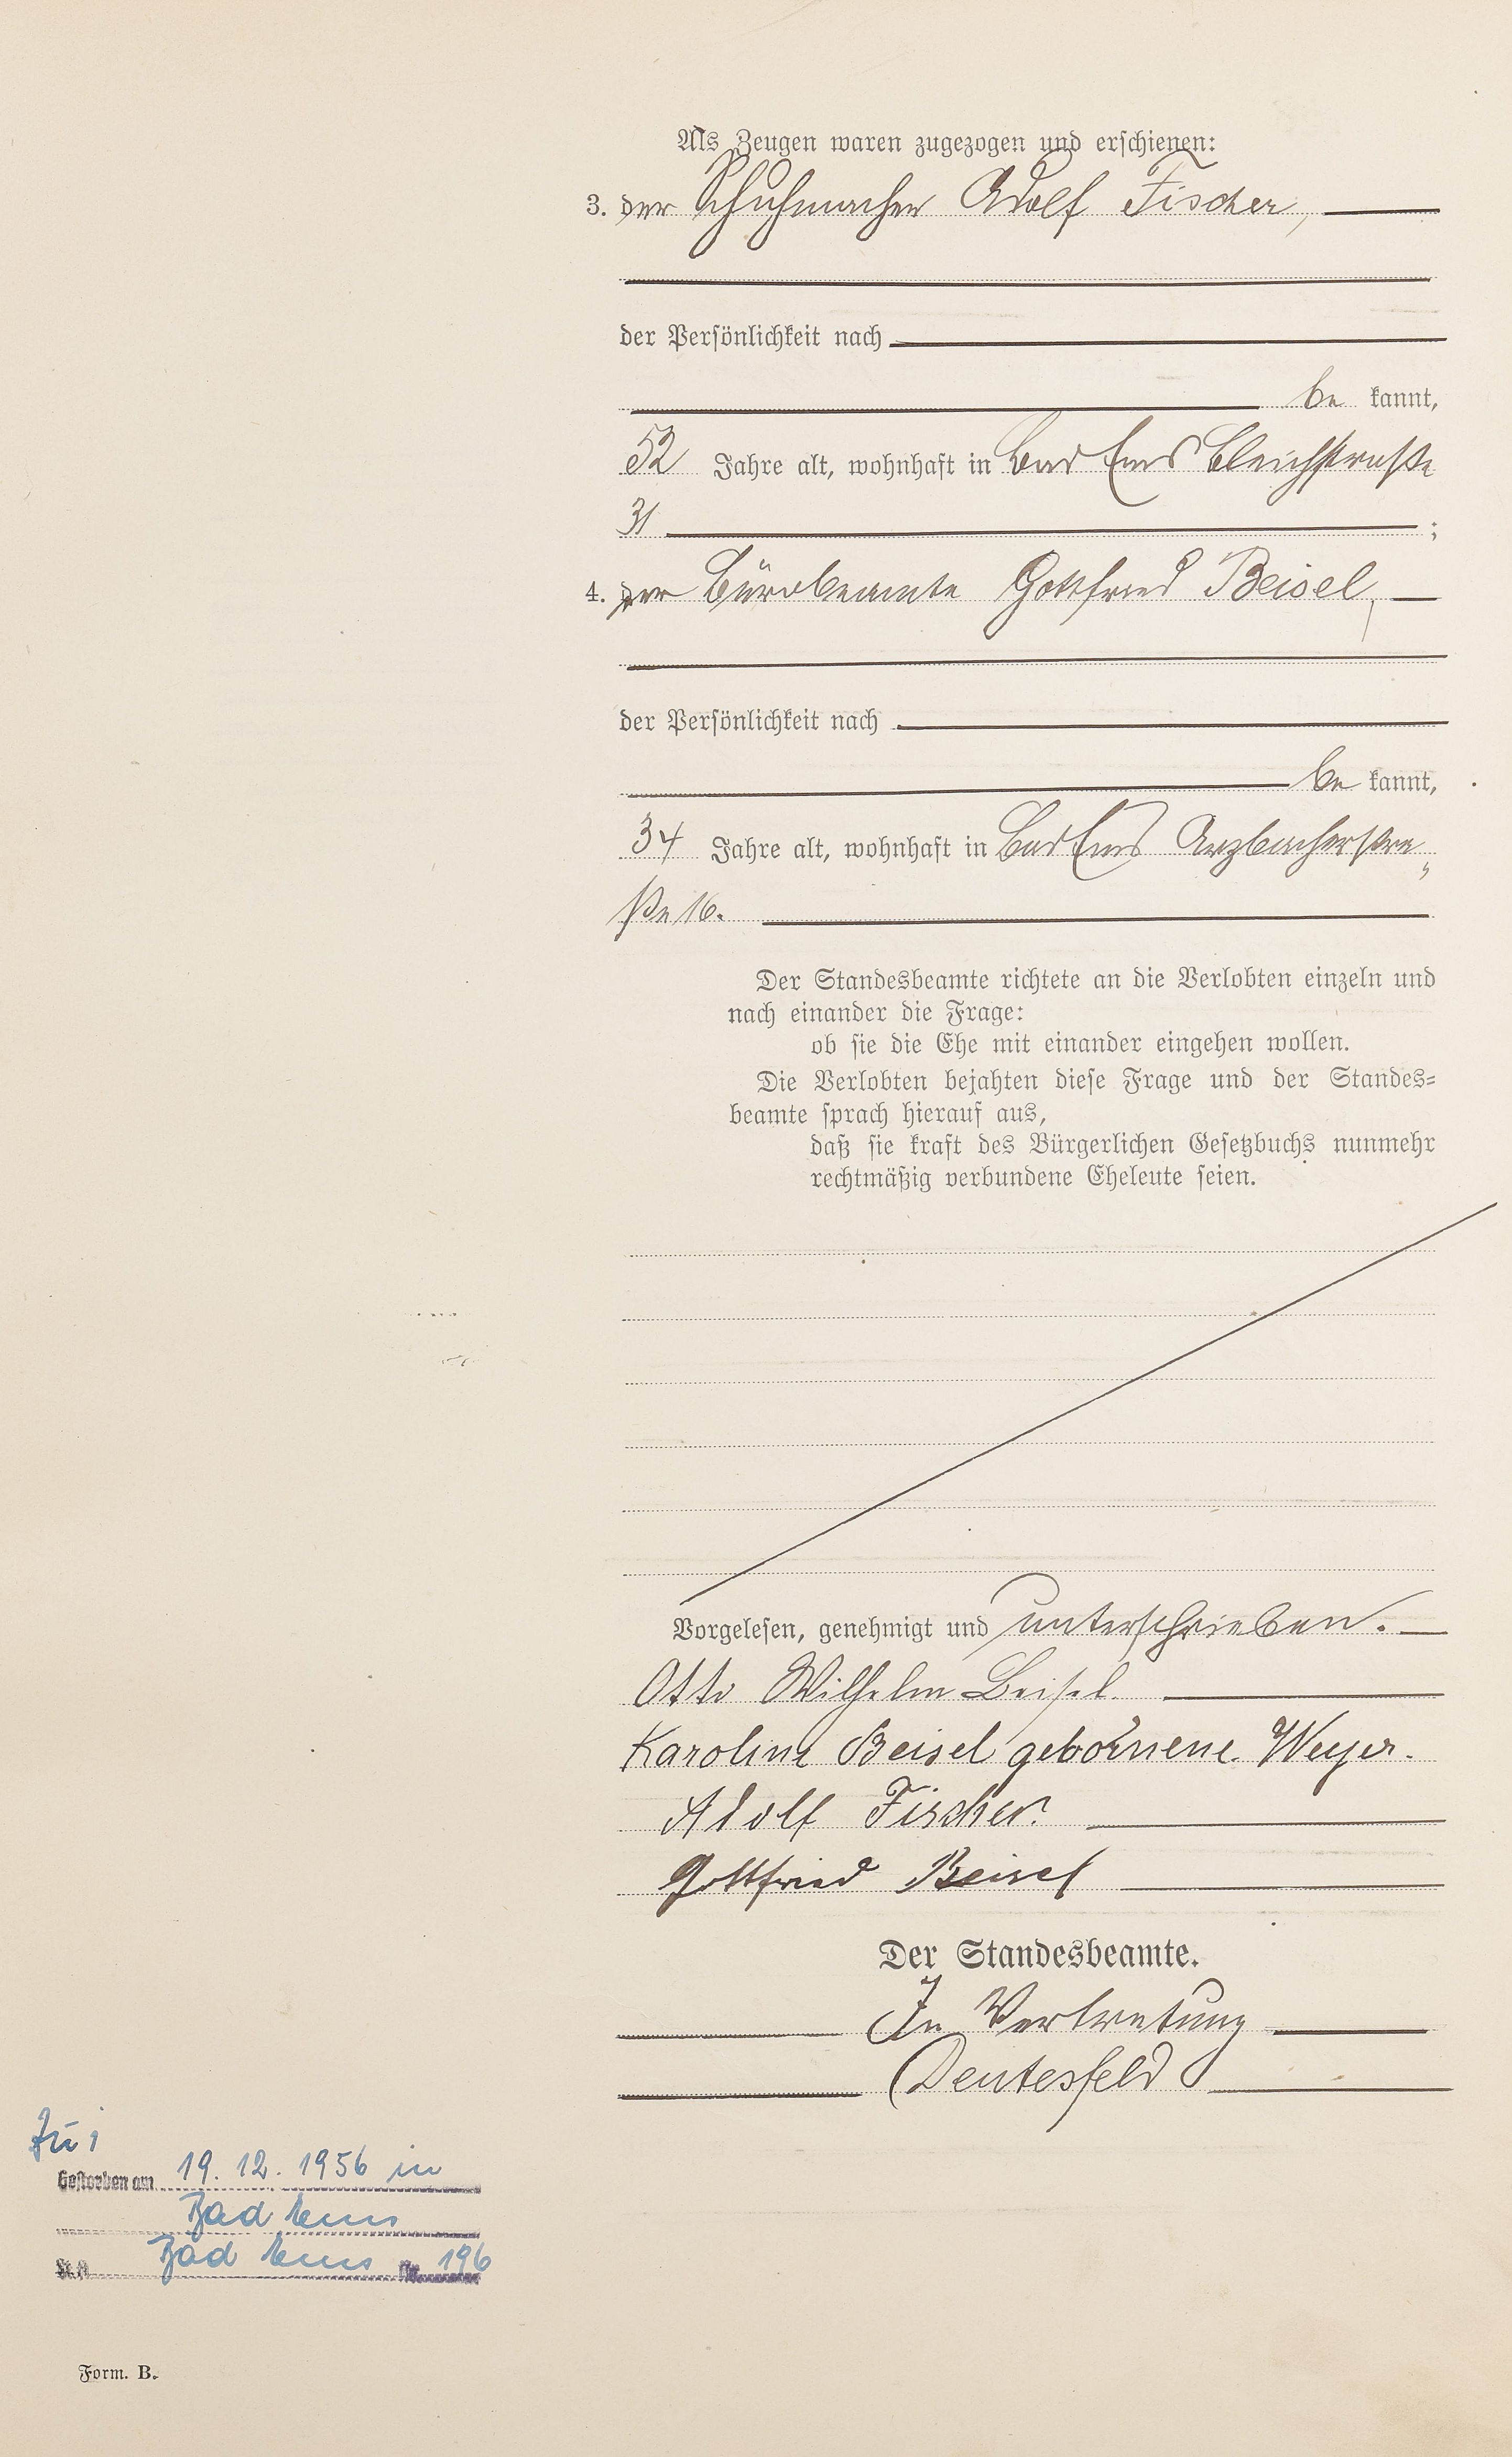 Als Zeugen waren zugezogen und erschienen:
3. der Schuhmacher Adolf Fischer,
der Persönlichkeit nach
be kannt,
52 Jahre alt, wohnhaft in Bad Ems Bleichstraße
31 ;
4. der Bürobeamte Gottfried Beisel,
der Persönlichkeit nach
be kannt,
34 Jahre alt, wohnhaft in Bad Ems Arzbacherstra„
ße 16.
Der Standesbeamte richtete an die Verlobten einzeln und
nach einander die Frage:
ob sie die Ehe mit einander eingehen wollen.
Die Verlobten bejahten diese Frage und der Standes=
beamte sprach hierauf aus,
daß sie kraft des Bürgerlichen Gesetzbuchs nunmehr
rechtmäßig verbundene Eheleute seien.
Vorgelesen, genehmigt und unterschrieben.
Otto Wilhelm Beisel.
Karoline Beisel gebornene Weyer.
Adolf Fischer.
Gottfried Beisel
Der Standesbeamte.
In Vertretung
Deutesfeld
Gestorben am 19. 12. 1956 in
Bad Ems
St.A. Bad Ems Nr. 196
Form. B.